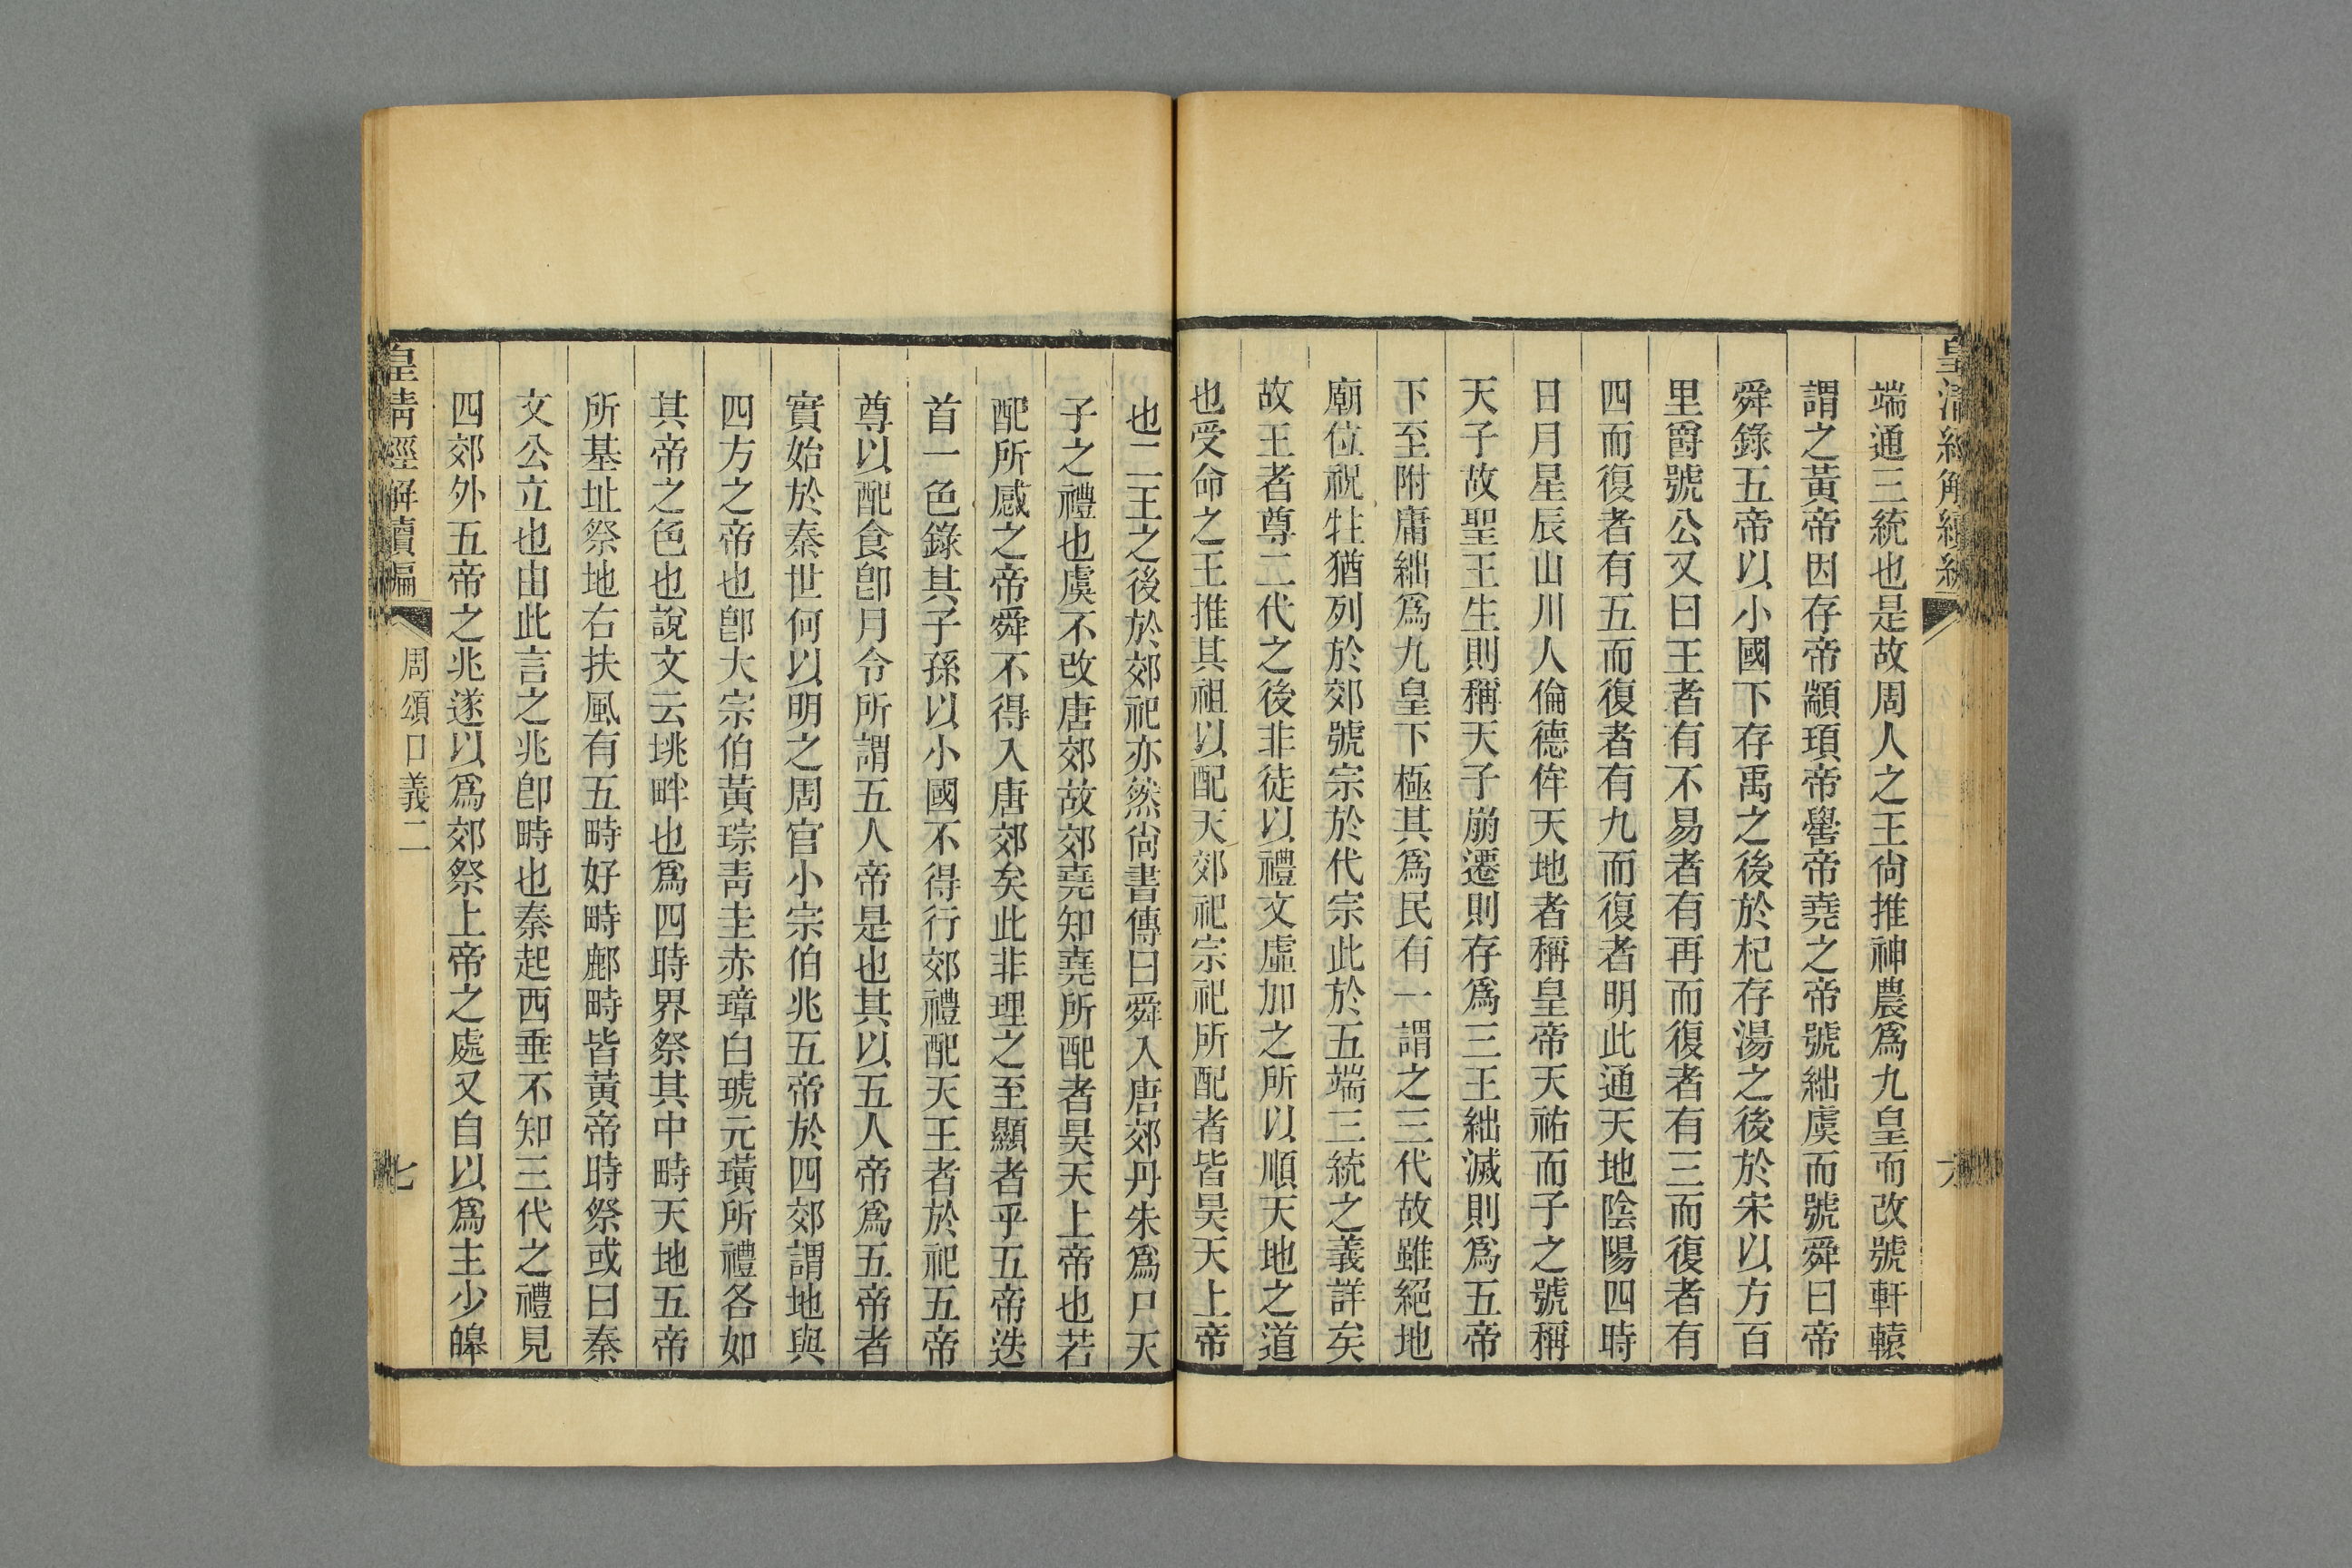 皇清經解續編
六
端通三統也是故周人之王尙推神農爲九皇而改號軒轅
謂之黃帝因存帝顓頊帝嚳帝堯之帝號絀虞而號舜曰帝
舜錄五帝以小國下存禹之後於杞存湯之後於宋以方百
里爵號公又曰王者有不易者有再而復者有三而復者有
四而復者有五而復者有九而復者明此通天地陰陽四時
日月星辰山川人倫德侔天地者稱皇帝天祐而子之號稱
天子故聖王生則稱天子崩遷則存爲三王絀滅則爲五帝
下至附庸絀爲九皇下極其爲民有一謂之三代故雖絕地
廟位祝牲猶列於郊號宗於代宗此於五端三統之義詳矣
故王者尊二代之後非徒以禮文虛加之所以順天地之道
也受命之王推其祖以配天郊祀宗祀所配者皆昊天上帝
也二王之後於郊祀亦然尙書傳曰舜入唐郊丹朱爲尸天
子之禮也虞不改唐郊故郊堯知堯所配者昊天上帝也若
配所感之帝舜不得入唐郊矣此非理之至顯者乎五帝迭
首一色錄其子孫以小國不得行郊禮配天王者於祀五帝
尊以配食卽月令所謂五人帝是也其以五人帝爲五帝者
實始於秦世何以明之周官小宗伯兆五帝於四郊謂地與
四方之帝也卽大宗伯黃琮靑圭赤璋白琥元璜所禮各如
其帝之色也說文云垗畔也爲四時界祭其中畤天地五帝
所基址祭地右扶風有五畤好畤鄜畤皆黃帝時祭或曰秦
文公立也由此言之兆卽畤也秦起西垂不知三代之禮見
四郊外五帝之兆遂以爲郊祭上帝之處又自以爲主少皞
皇清經解續編
周頌口義二
七